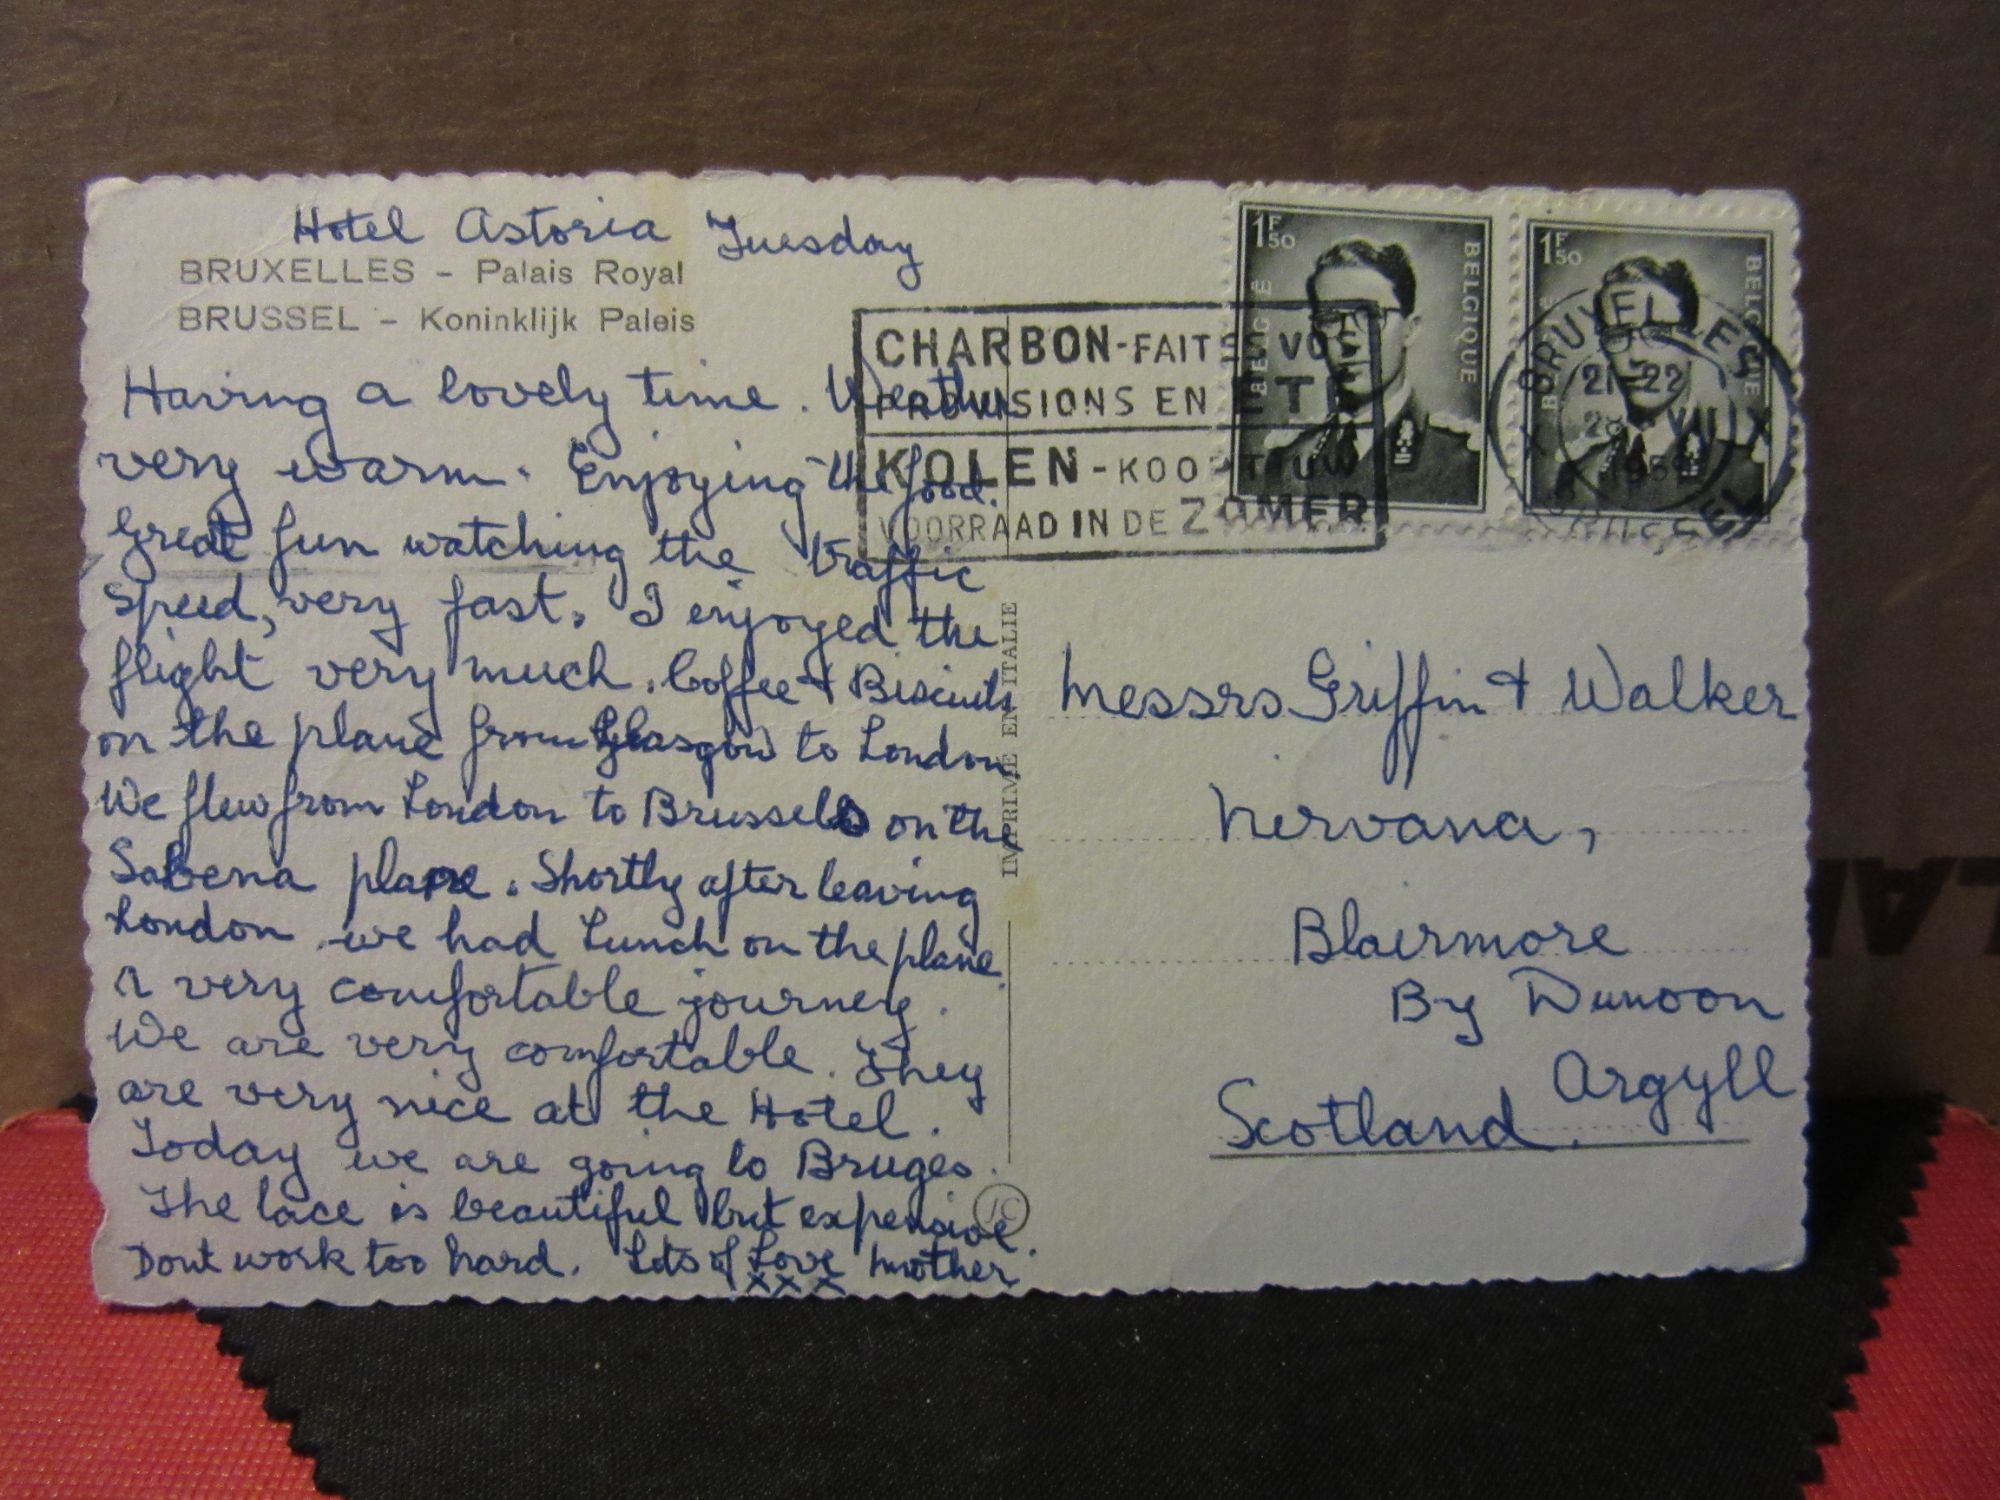 Hotel Astoria Tuesday
BRUXELLES - Palais Royal
BRUSSEL - Koninklijk Paleis
Having a lovely time. Weather
very warm. Enjoying the food.
Great fun watching the traffic
Speed, very fast. I enjoyed the
flight very much. Coffee & Biscuits
on the plane from Glasgow to London.
We flew from London to Brussels on the
Sabena plane. Shortly after leaving
London we had Lunch on the plane.
A very comfortable journey.
We are very comfortable. They
are very nice at the Hotel.
Today we are going to Bruges.
The lace is beautiful but expensive.
Dont work too hard. Lots of Love Mother
xxx
IMPRIMÉ EN ITALIE
JC
CHARBON-FAITES VOS
PROVISIONS EN ETE
KOLEN-KOOPT UW
VOORRAAD IN DE ZOMER
1F50 BELGIE BELGIQUE
1F50 BELGIE BELGIQUE
BRUXELLES
21-22
VIII
BRUSSEL
Messrs Griffin & Walker
Nervana,
Blairmore
By Dunoon
Argyll
Scotland.